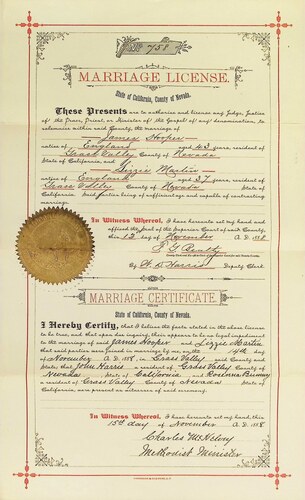 758
MARRIAGE LICENSE.
State of California, County of Nevada.
These Presents are to authorize and license any Judge, Justice
of the Peace, Priest, or Minister of the Gospel of any denomination, to
solemnize within said County, the marriage of
James Hooper
native of England aged 43 years, resident of
Grass Valley County of Nevada
State of California, and
Lizzie Martin
native of England aged 37 years, resident of
Grass Valley County of Nevada State of
California. Said parties being of sufficient age and capable of contracting
marriage.
In Witness Whereof, I have hereunto set my hand and
affixed the Seal of the Superior Court of said County,
this 12 day of November A. D. 1888
F. G. Beatty
By W. D. Harris Deputy Clerk
MARRIAGE CERTIFICATE.
State of California, County of Nevada.
I Hereby Certify, that I believe the facts stated in the above license
to be true, and that upon due inquiry, there appears to be no legal impediment
to the marriage of said James Hooper and Lizzie Martin
that said parties were joined in marriage by me, on the 14th
day of November A. D. 1888, in Grass Valley said County and
State; that John Harris a resident of Grass Valley County of
Nevada State of California and
a resident of Grass Valley County of Nevada State of
California, were present as witnesses of said ceremony.
In Witness Whereof, I have hereunto set my hand, this
15th day of November A. D. 1888
Charles McKelvey
Methodist Minister